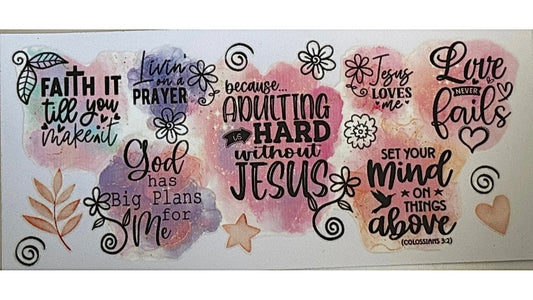 FAITH IT
till you
make it
Livin'
on a
PRAYER
God
has
Big Plans
for
Me
because...
ADULTING
HARD
without
JESUS
Jesus
LOVES
me
Love
NEVER
fails
SET YOUR
Mind
ON
THINGS
above
(COLOSSIANS 3:2)